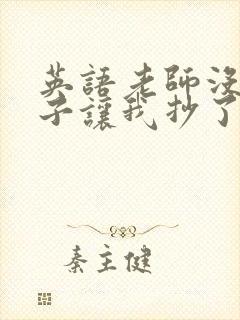 英語老師沒
子讓我抄了
秦主健